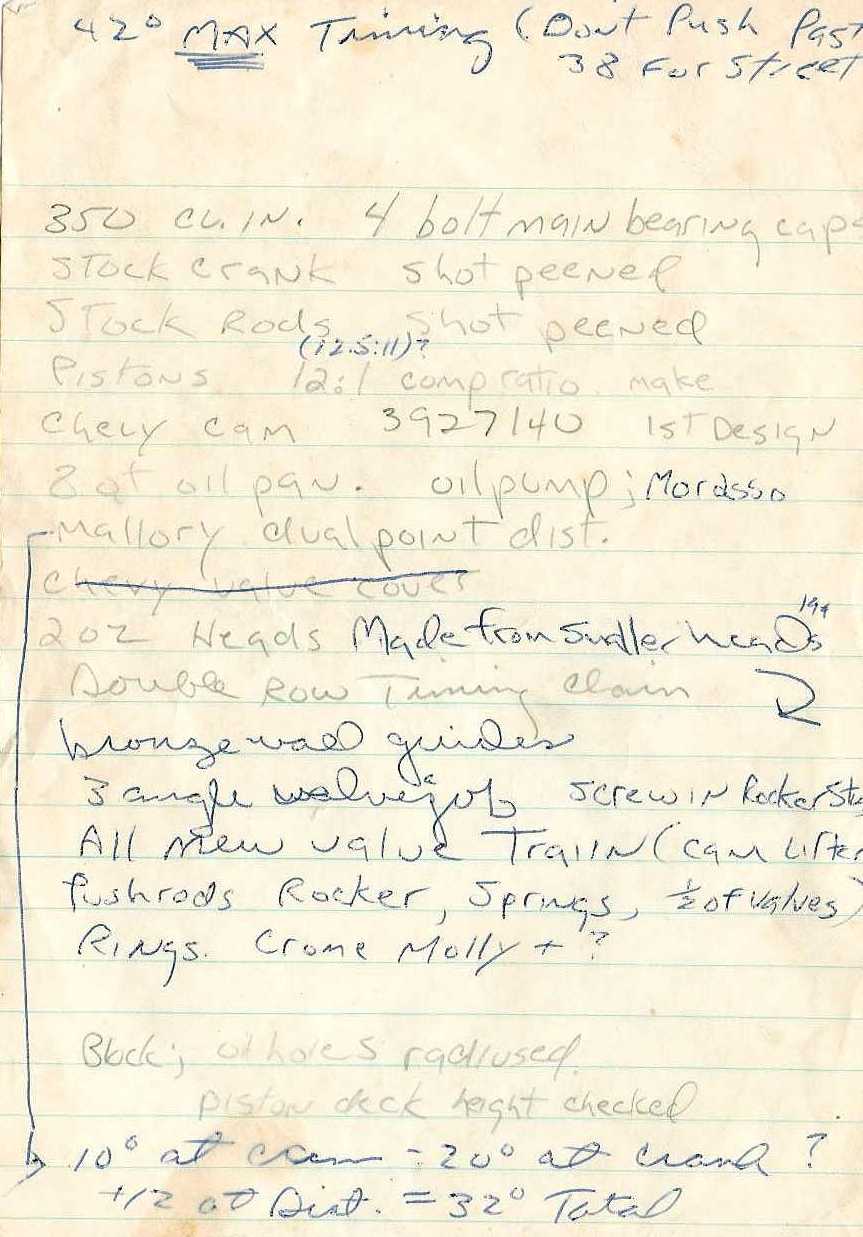 42° MAX Timing (Dont Push Past
38 For Street
350 cu. IN. 4 bolt main bearing caps
Stock crank shot peened
Stock Rods shot peened
(12.5:11)?
Pistons 12:1 comp ratio. make
Chevy cam 3927140 1st Design
8 qt oil pan. oil pump; Morosso
Mallory dual point dist.
Chevy valve cover
194
202 Heads Made from Smaller heads
Double Row Timing Chain
bronze wall guides
3 angle valve job Screw IN Rocker Stu
All New Valve Traiin (cam Lifter
Pushrods Rocker, Springs, ½ of valves)
Rings. Crome Molly + ?
Block; oil holes radiused.
piston deck height checked
10° at cam - 20° at crank ?
+12 at Dist. = 32° Total